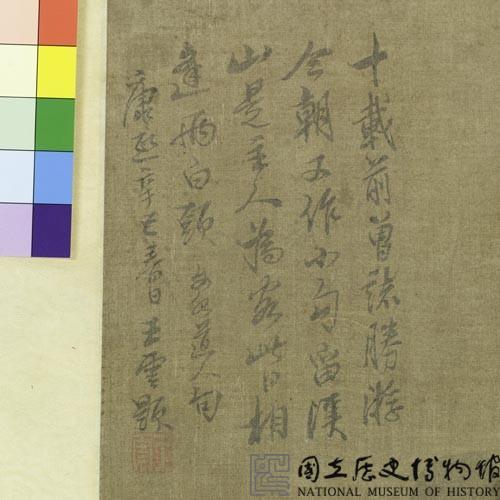 十載前曾誌勝游
今朝又作小句留溪
山是主人為客此日相
逢摠白頭 道人句
康熙辛巳春日王雲題
國立歷史博物館
NATIONAL MUSEUM OF HISTORY